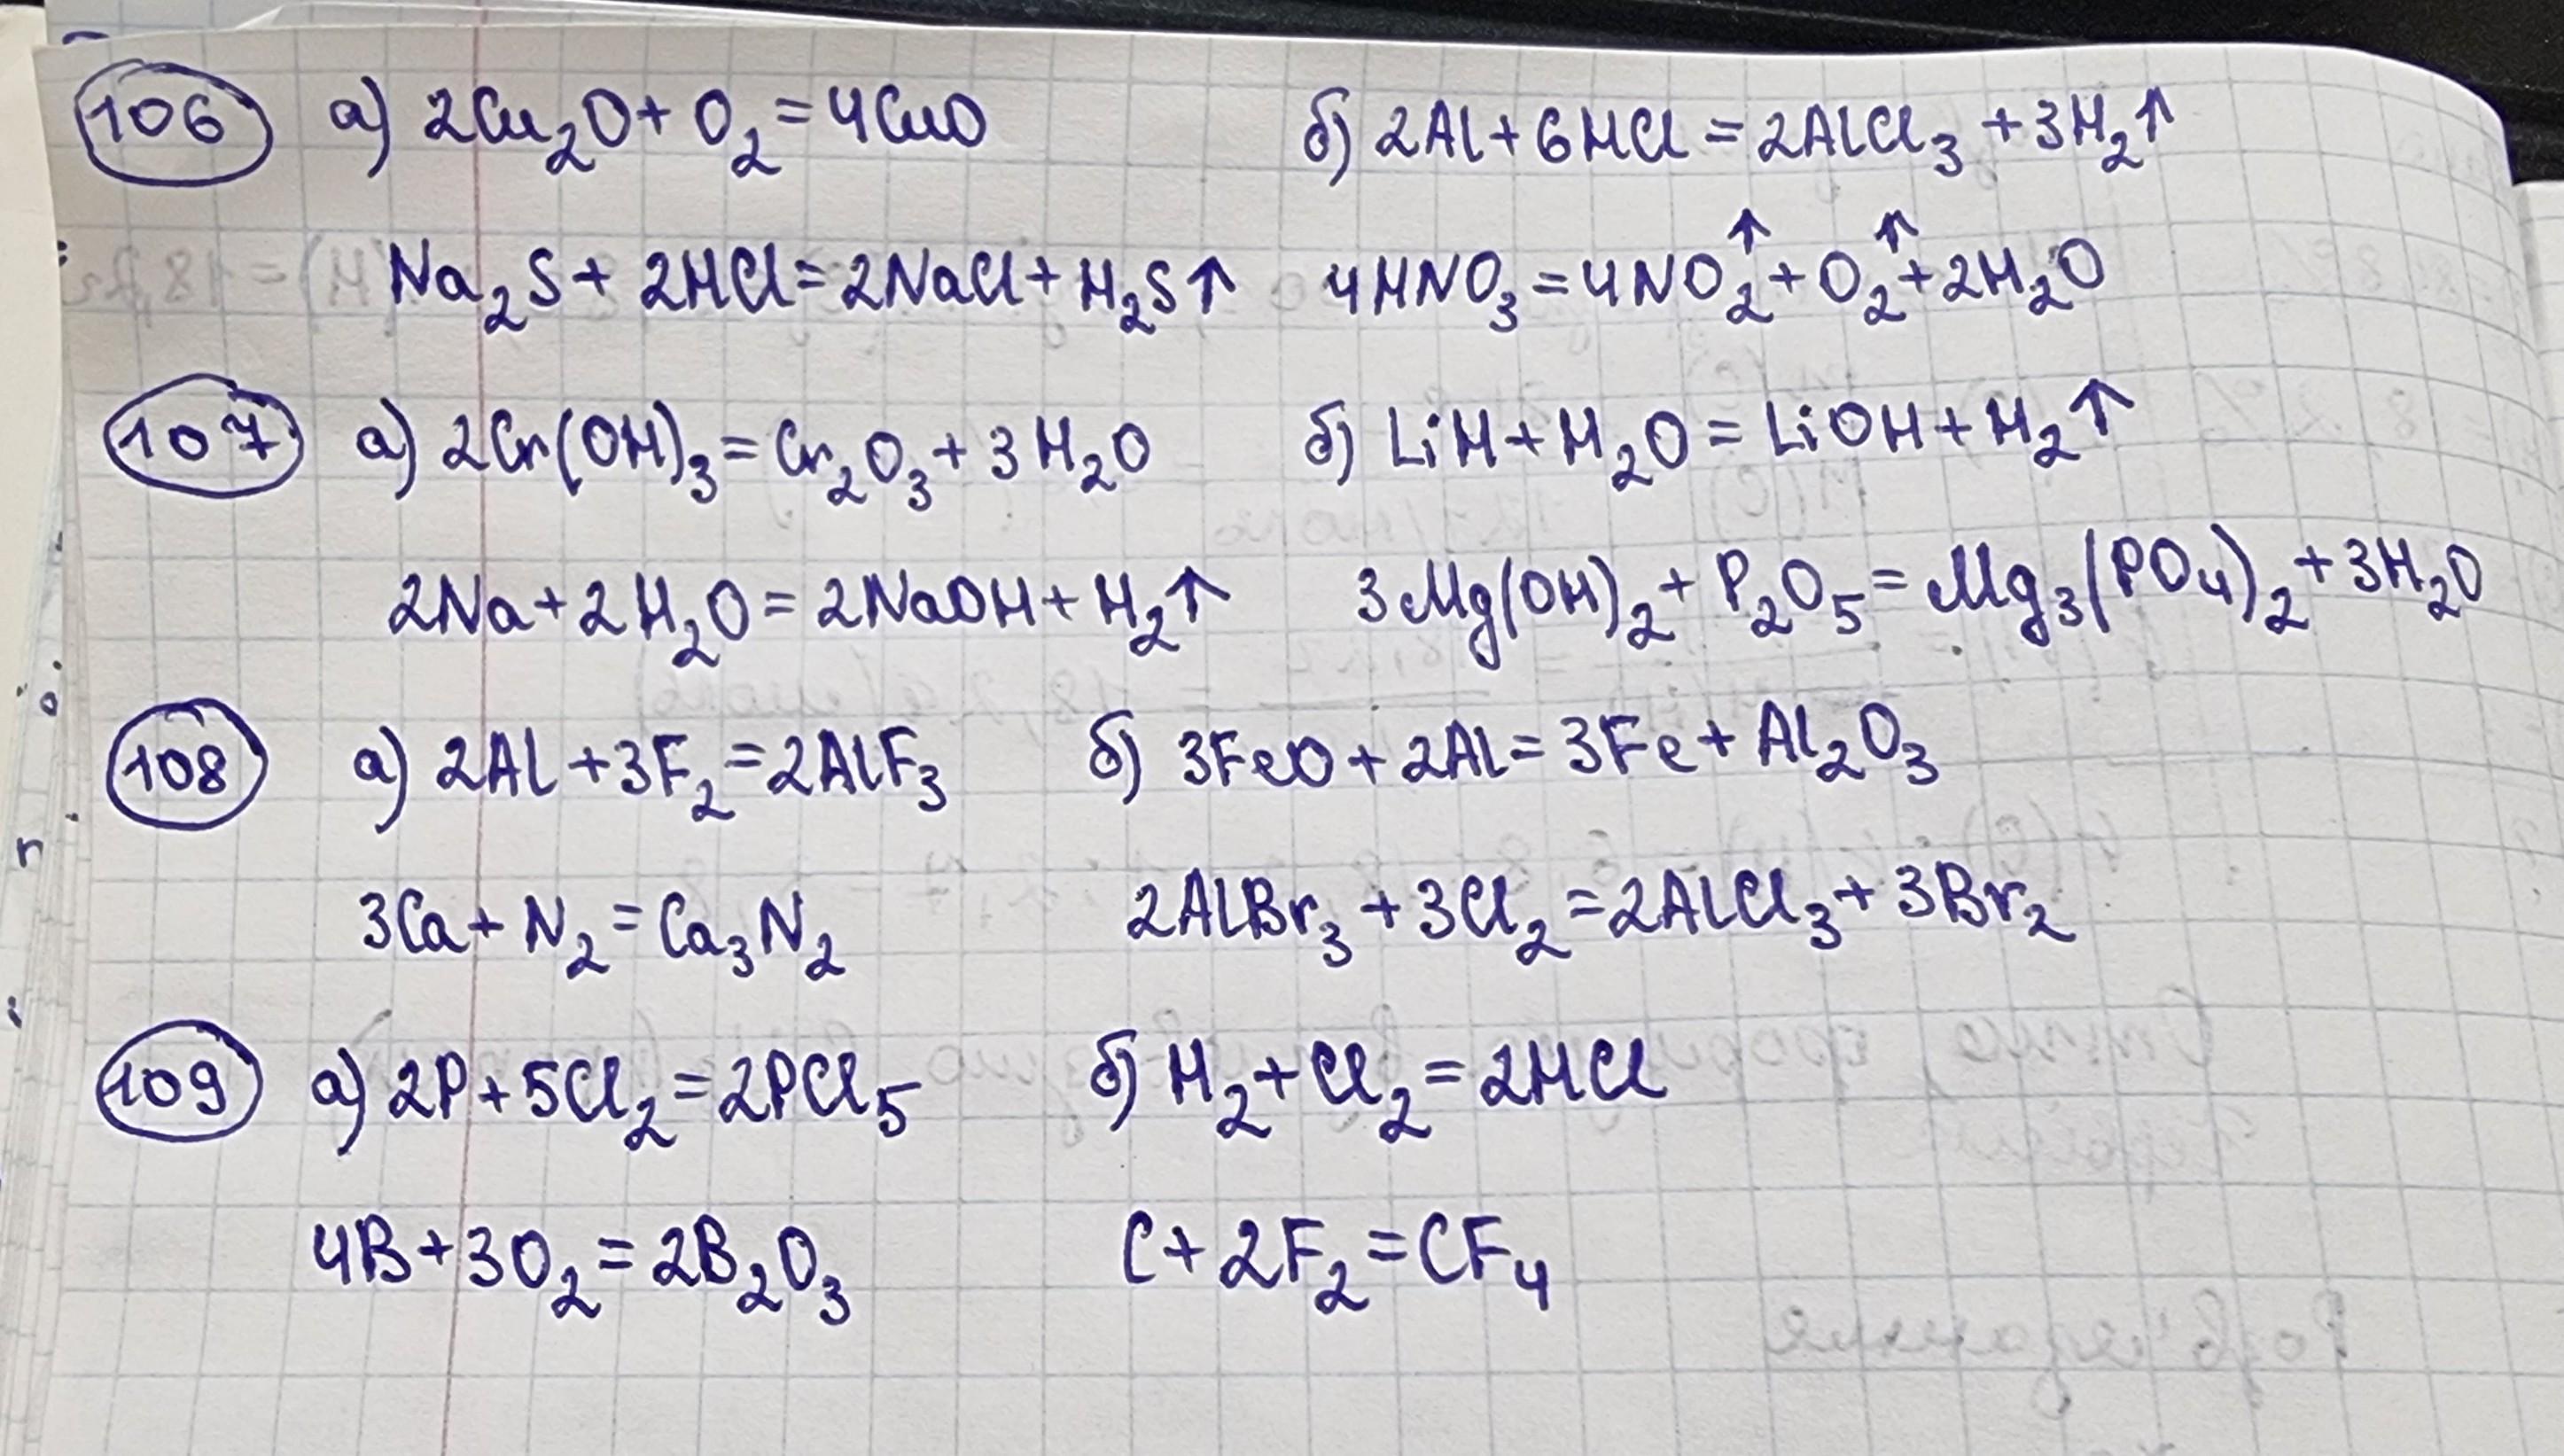 106 а) 2Cu₂O + O₂ = 4CuO б) 2Al + 6HCl = 2AlCl₃ + 3H₂↑
Na₂S + 2HCl = 2NaCl + H₂S↑ 4HNO₃ = 4NO₂↑ + O₂↑ + 2H₂O
107 а) 2Cr(OH)₃ = Cr₂O₃ + 3H₂O б) LiH + H₂O = LiOH + H₂↑
2Na + 2H₂O = 2NaOH + H₂↑ 3Mg(OH)₂ + P₂O₅ = Mg₃(PO₄)₂ + 3H₂O
108 а) 2Al + 3F₂ = 2AlF₃ б) 3FeO + 2Al = 3Fe + Al₂O₃
3Ca + N₂ = Ca₃N₂ 2AlBr₃ + 3Cl₂ = 2AlCl₃ + 3Br₂
109 а) 2P + 5Cl₂ = 2PCl₅ б) H₂ + Cl₂ = 2HCl
4B + 3O₂ = 2B₂O₃ C + 2F₂ = CF₄